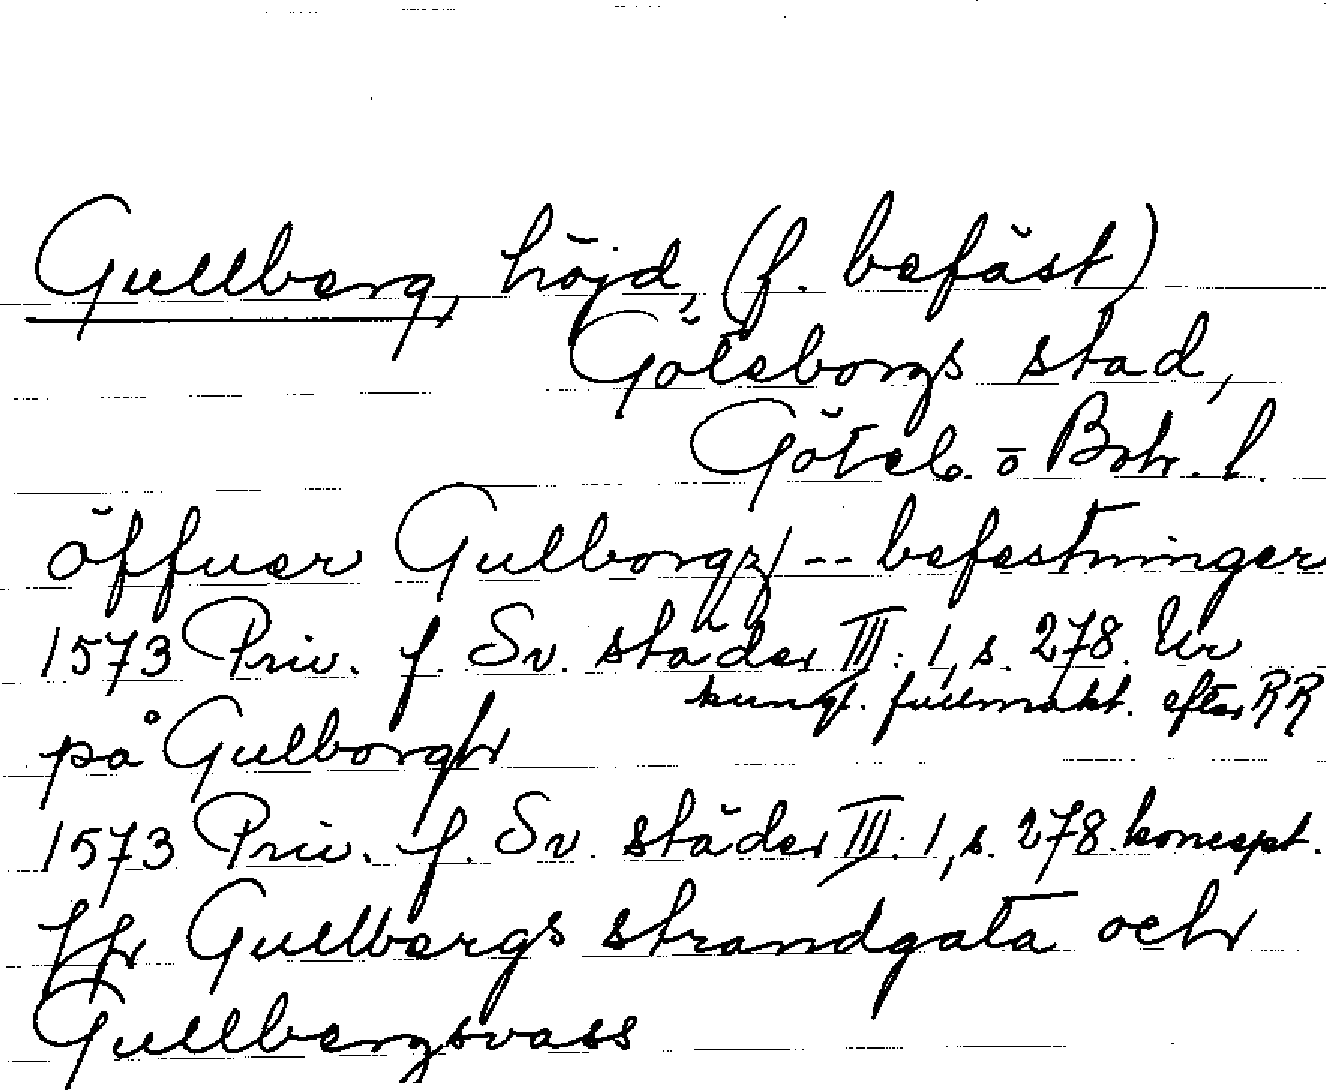 Gullberg, höjd, (f. befäst)
Göteborgs stad,
Göteb. o Boh. l.
öffuer Gulborgz/ -- befestninger
1573 Priv. f. Sv. städer III: 1, s. 278. Ur
kungl. fullmakt. efter RR
på Gulborgh
1573 Priv. f. Sv. städer III: 1, s. 278. koncept.
Jfr Gullbergs strandgata och
Gullbergsvass